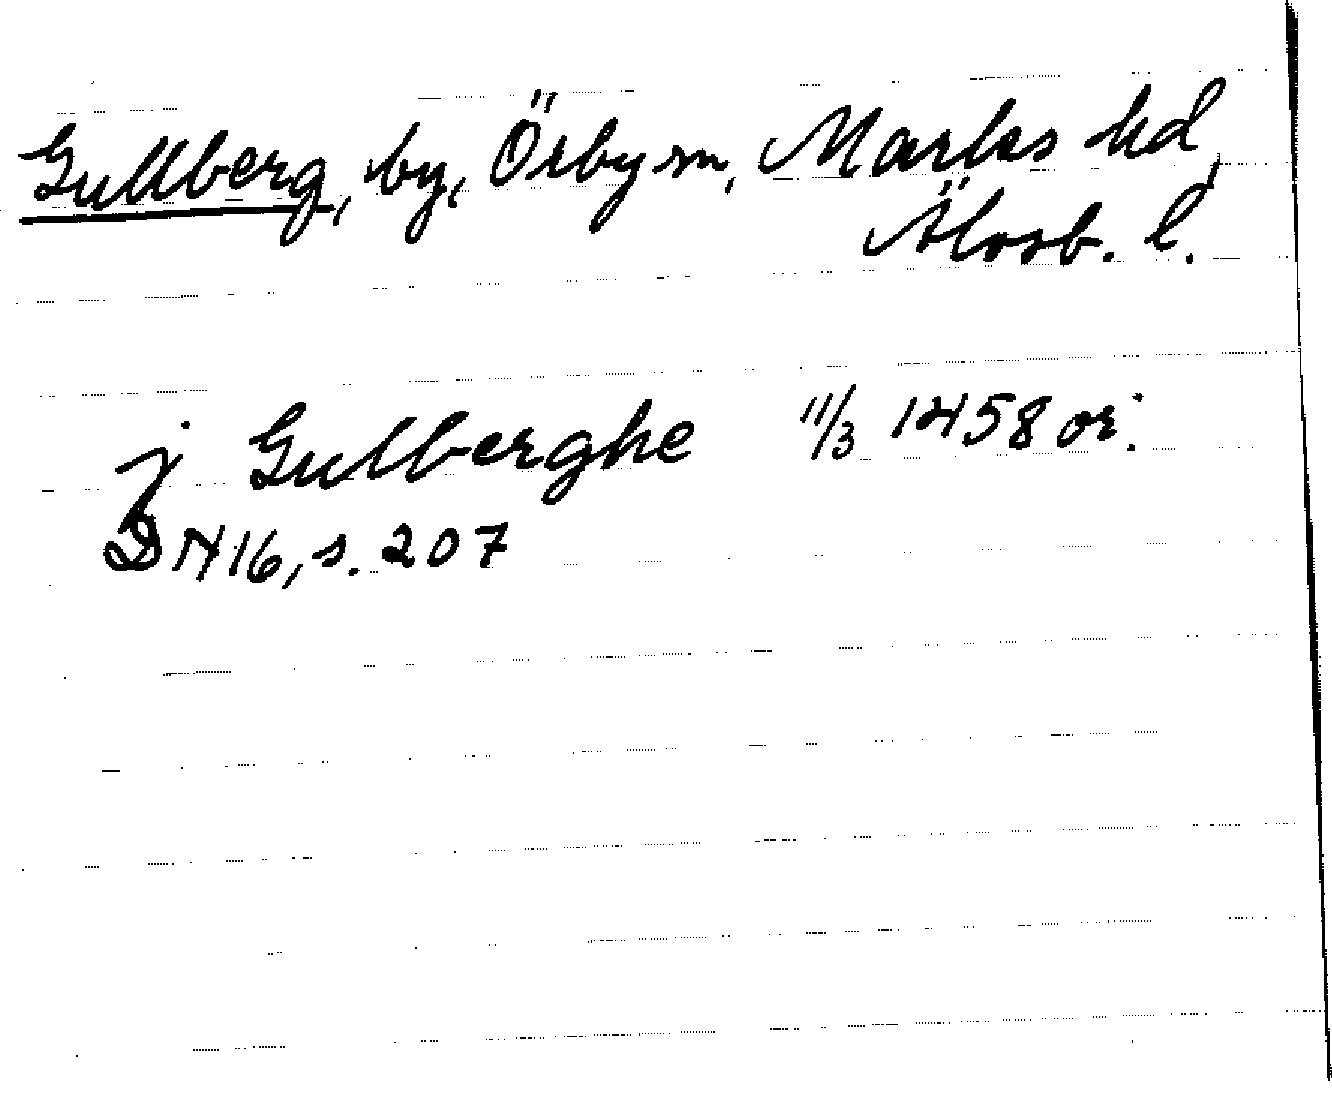 Gullberg, by, Örby sn, Marks hd,
Älvsb. l.
j Gulberghe 11/3 1458 or.
DN 16, s. 207